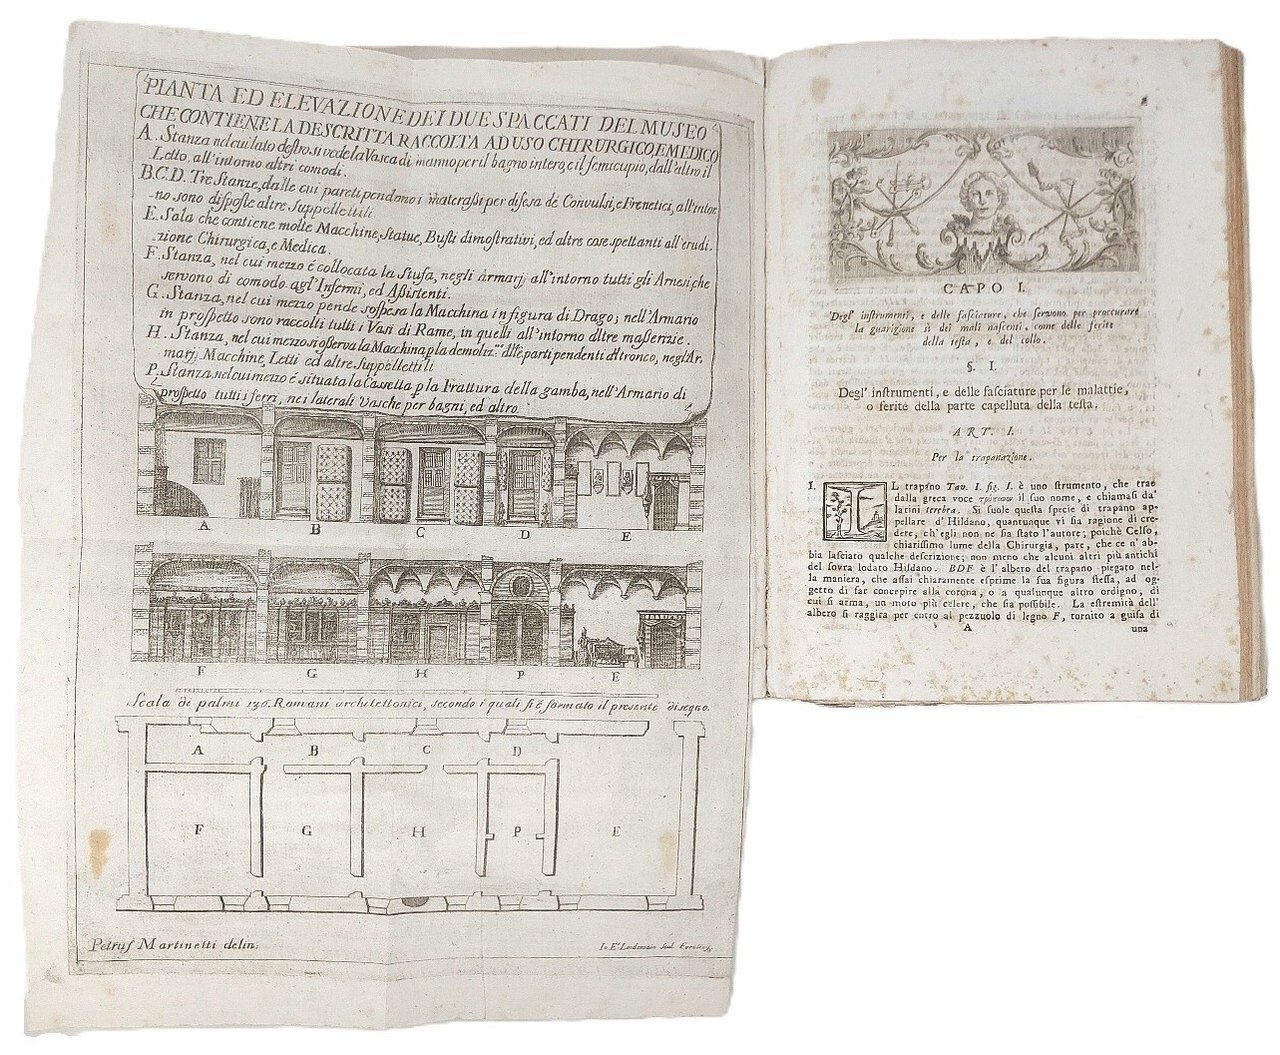 PIANTA ED ELEVAZIONE DEI DUE SPACCATI DEL MUSEO
CHE CONTIENE LA DESCRITTA RACCOLTA AD USO CHIRURGICO, E MEDICO
A. Stanza nel cui lato destro si vede la Vasca di marmo per il bagno intero, e il semicupio, dall'altro il
Letto, all'intorno altri comodi.
B.C.D. Tre Stanze, dalle cui pareti pendono i materaßi per difesa de Convulsi, e Frenetici, all'intor
no sono disposte altre Suppellettili.
E. Sala che contiene molte Macchine, Statue, Busti dimostrativi, ed altre cose spettanti all'erudi.
zione Chirurgica, e Medica.
F. Stanza, nel cui mezzo é collocata la Stufa, negli Armarj all'intorno tutti gli Arnesi che
servono di comodo agl'Infermi, ed Aßistenti.
G. Stanza, nel cui mezzo pende sospesa la Macchina in figura di Drago; nell'Armario
in prospetto sono raccolti tutti i Vasi di Rame, in quelli all'intorno altre masserizie.
H. Stanza, nel cui mezzo si osserva la Macchina p la demoliz.ne delle parti pendenti dal tronco, negl'Ar.
marj Macchine, Letti ed altre Suppellettili
P. Stanza, nel cui mezzo é situata la Cassetta p la Frattura della gamba, nell'Armario di
prospetto tutti i ferri, ne i laterali Vasche per bagni, ed altro.
A B C D E
F G H P E
Scala di palmi 136. Romani architettonici, secondo i quali si é formato il presente disegno.
A B C D
F G H P E
Petrus Martinetti delin:
CAPO I.
Degl' instrumenti, e delle fasciature, che servono per procurare
la guarigione sì dei mali nascenti, come delle ferite
della testa, e del collo.
§. I.
Degl' instrumenti, e delle fasciature per le malattie,
o ferite della parte capelluta della testa.
ART. I.
Per la trapanazione.
I. IL trapano Tav. I. fig. I. è uno strumento, che trae
dalla greca voce il suo nome, e chiamasi da'
latini terebra. Si suole questa specie di trapano ap-
pellare d' Hildano, quantunque vi sia ragione di cre-
dere, ch'egli non ne sia stato l'autore; poichè Celso,
chiarissimo lume della Chirurgia, pare, che ce n' ab-
bia lasciato qualche descrizione; non meno che alcuni altri più antichi
del sovra lodato Hildano. BDF è l'albero del trapano piegato nel-
la maniera, che assai chiaramente esprime la sua figura stessa, ad og-
getto di far concepire alla corona, o a qualunque altro ordigno, di
cui si arma, un moto più celere, che sia possibile. La estremità dell'
albero si raggira per entro al pezzuolo di legno F, tornito a guisa di
A una